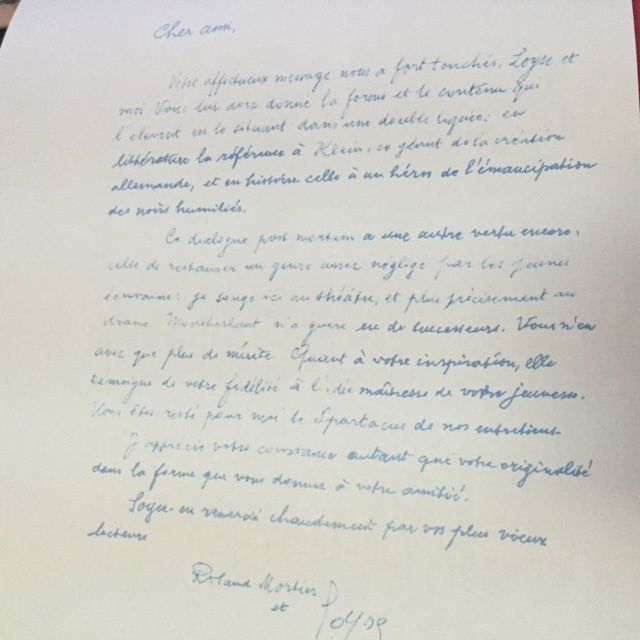 Cher ami,
Votre affectueux message nous a fort touchés, Loyse et
moi. Vous lui avez donné la forme et le contenu qui
l'élèvent en le situant dans une double lignée : en
littérature la référence à Kleist, ce géant de la création
allemande, et en histoire celle à un héros de l'émancipation
des noirs humiliés.
Ce dialogue post mortem a une autre vertu encore,
celle de restaurer un genre assez négligé par les jeunes
écrivains : je songe ici au théâtre, et plus précisément au
drame Montherlant n'a guère eu de successeurs. Vous n'en
avez que plus de mérite. Quant à votre inspiration, elle
témoigne de votre fidélité à l'idée maîtresse de votre jeunesse.
Vous êtes resté pour moi le Spartacus de nos entretiens.
J'apprécie votre constance autant que votre originalité
dans la forme que vous donnez à votre amitié.
Soyez-en remercié chaudement par vos plus vieux
lecteurs
Roland Mortier
et Loyse